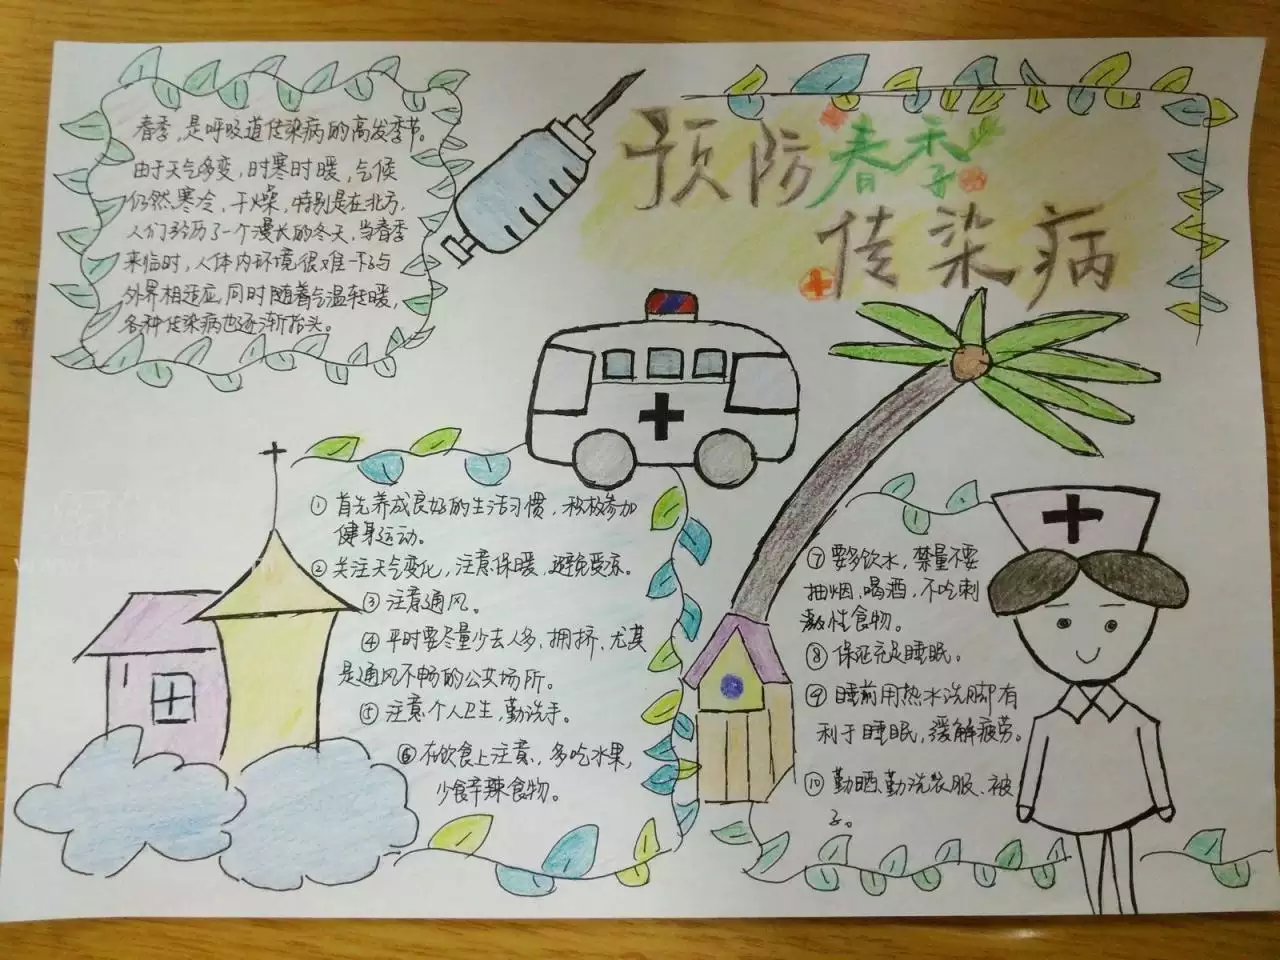 预防春季
传染病
春季,是呼吸道传染病的高发季节。
由于天气多变,时寒时暖,气候
仍然寒冷、干燥,特别是在北方,
人们经历了一个漫长的冬天,当春季
来临时,人体内环境很难一下子与
外界相适应,同时随着气温转暖,
各种传染病也逐渐抬头。
① 首先养成良好的生活习惯,积极参加
健身运动。
② 关注天气变化,注意保暖,避免受凉。
③ 注意通风。
④ 平时要尽量少去人多、拥挤、尤其
是通风不畅的公共场所。
⑤ 注意个人卫生,勤洗手。
⑥ 在饮食上注意,多吃水果,
少食辛辣食物。
⑦ 要多饮水,禁量不要
抽烟、喝酒,不吃刺
激性食物。
⑧ 保证充足睡眠。
⑨ 睡前用热水洗脚有
利于睡眠,缓解疲劳。
⑩ 勤晒、勤洗衣服、被
子。